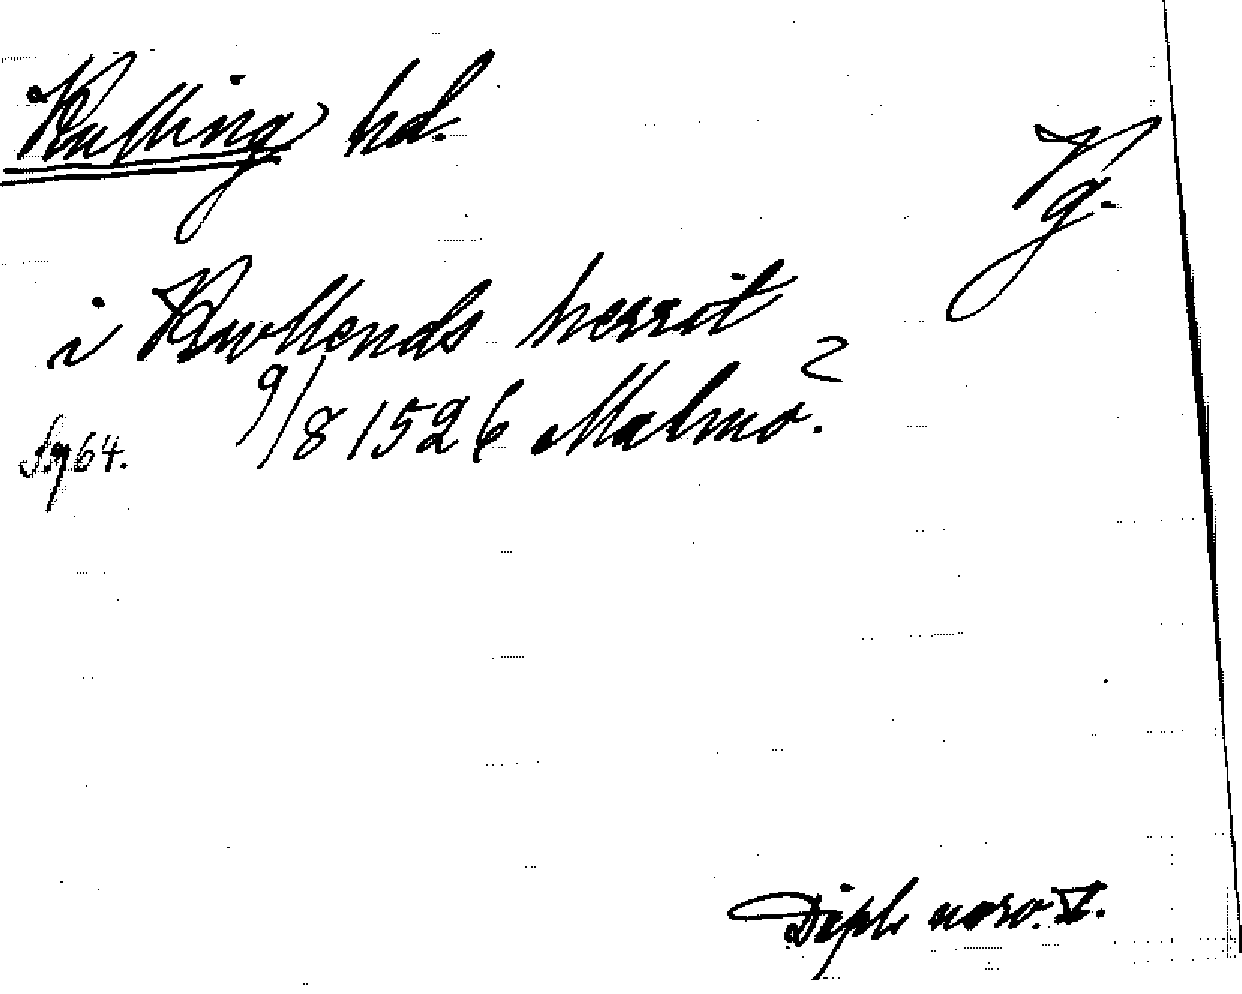 Kulling hd.
Vg.
i Kwllends herrit
9/8 1526 Malmö?
Sg 64.
Dipl. norv. V.